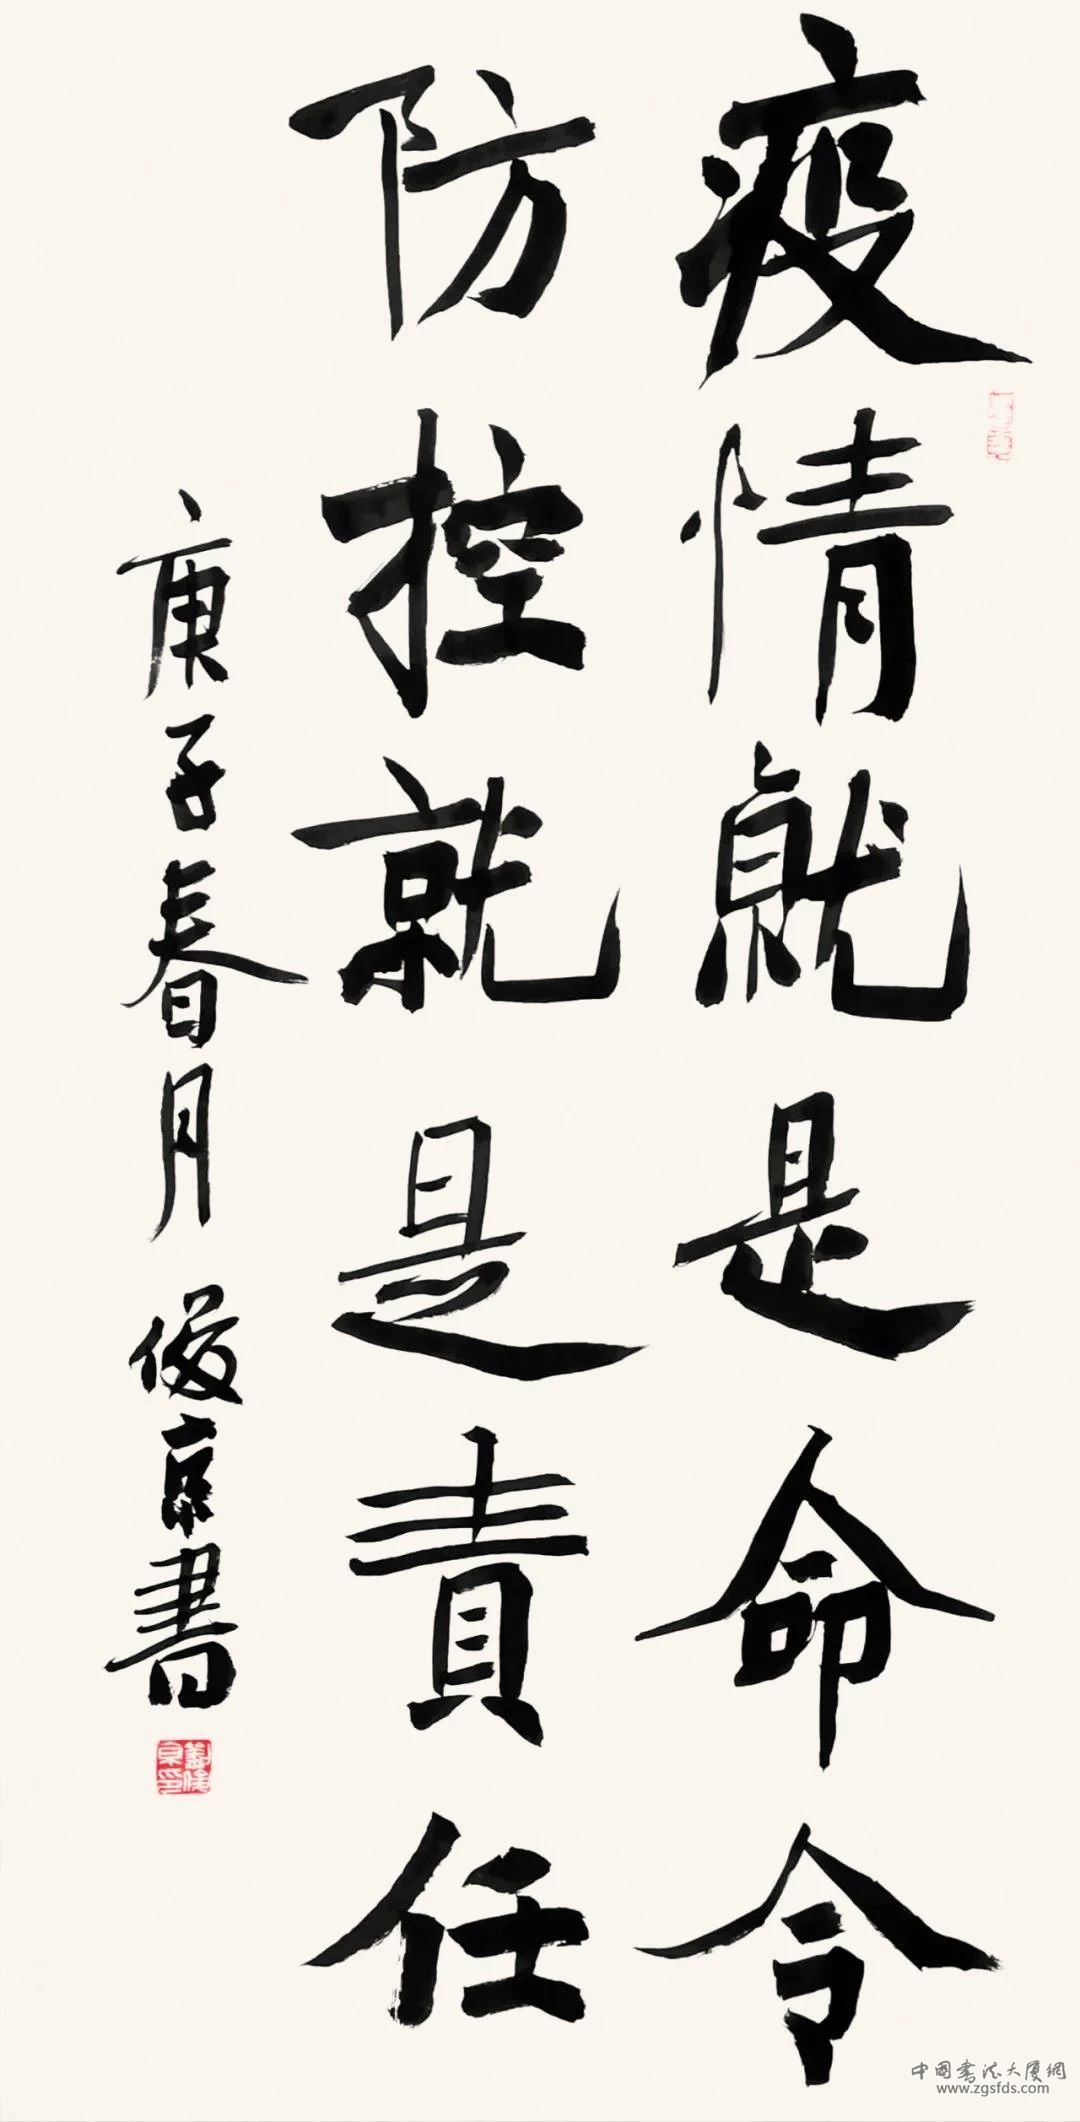 疫情就是命令
防控就是責任
庚子春月 俊京書
中國書法大廈網
www.zgsfds.com